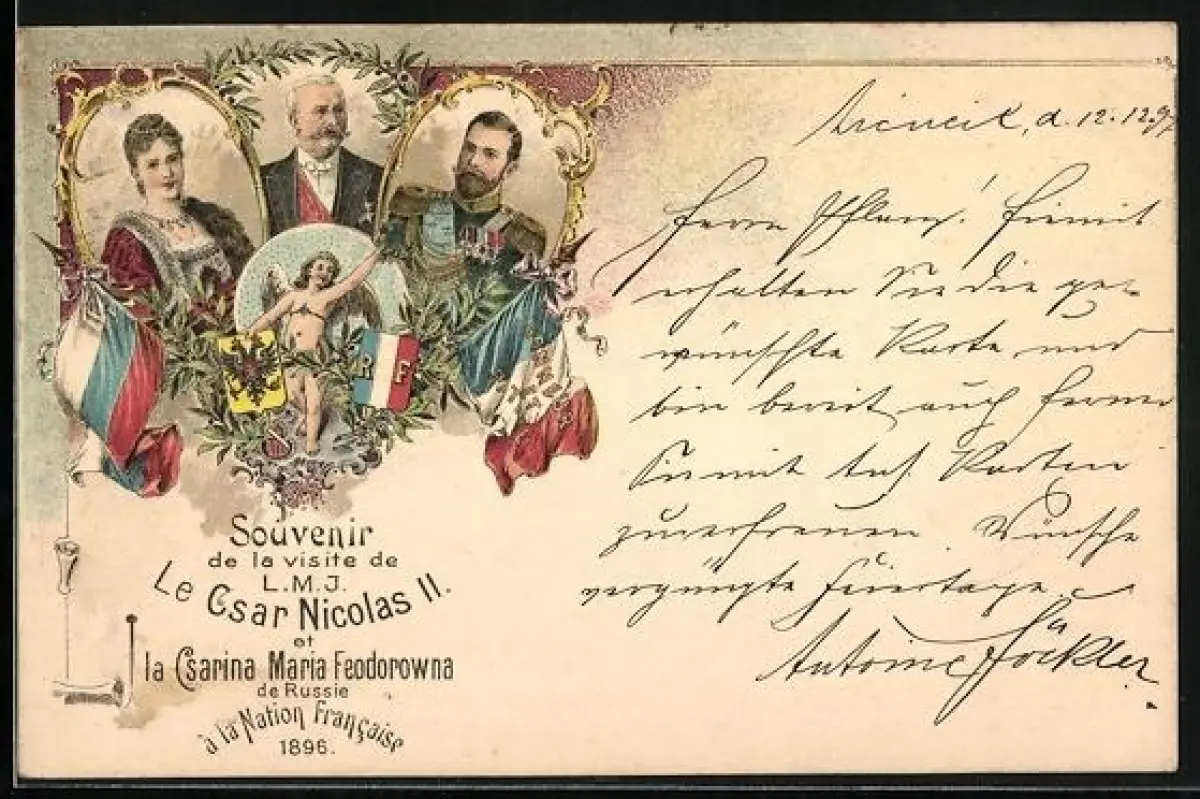 Souvenir
de la visite de
L.M.J.
Le Csar Nicolas II.
et
la Csarina Maria Feodorowna
de Russie
à la Nation Française
1896.
R F
d. 12.12.97
Herrn Pflanz! Hiemit
erhalten Sie die ge-
wünschte Karte und
bin bereit auch ferner
Sie mit Karten
zu erfreuen. Wünsche
vergnügte Feiertage.
Antoine